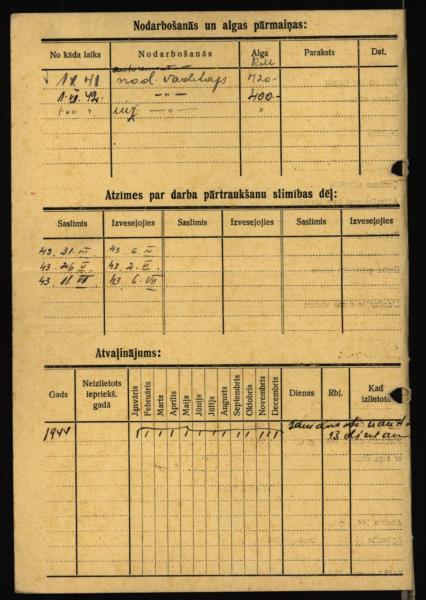 Nodarbošanās un algas pārmaiņas:
No kāda laika Nodarbošanās Alga Paraksts Dat.
RM
41 nod. vadītājs 420.-
1. VI. 42. -"- 400.-
-"- "
Atzīmes par darba pārtraukšanu slimības dēļ:
Saslimis Izveseļojies Saslimis Izveseļojies Saslimis Izveseļojies
43. 31. III 43. 6. IV
43. 26. V 43. 2. VI
43. 11. VI 43. 6. VII
Atvaļinājums:
Gads Neizlietots iepriekš. gadā Janvāris Februāris Marts Aprīlis Maijs Jūnijs Jūlijs Augusts Septembris Oktobris Novembris Decembris Dienas Rbļ. Kad izlietots
1944
13 dienam